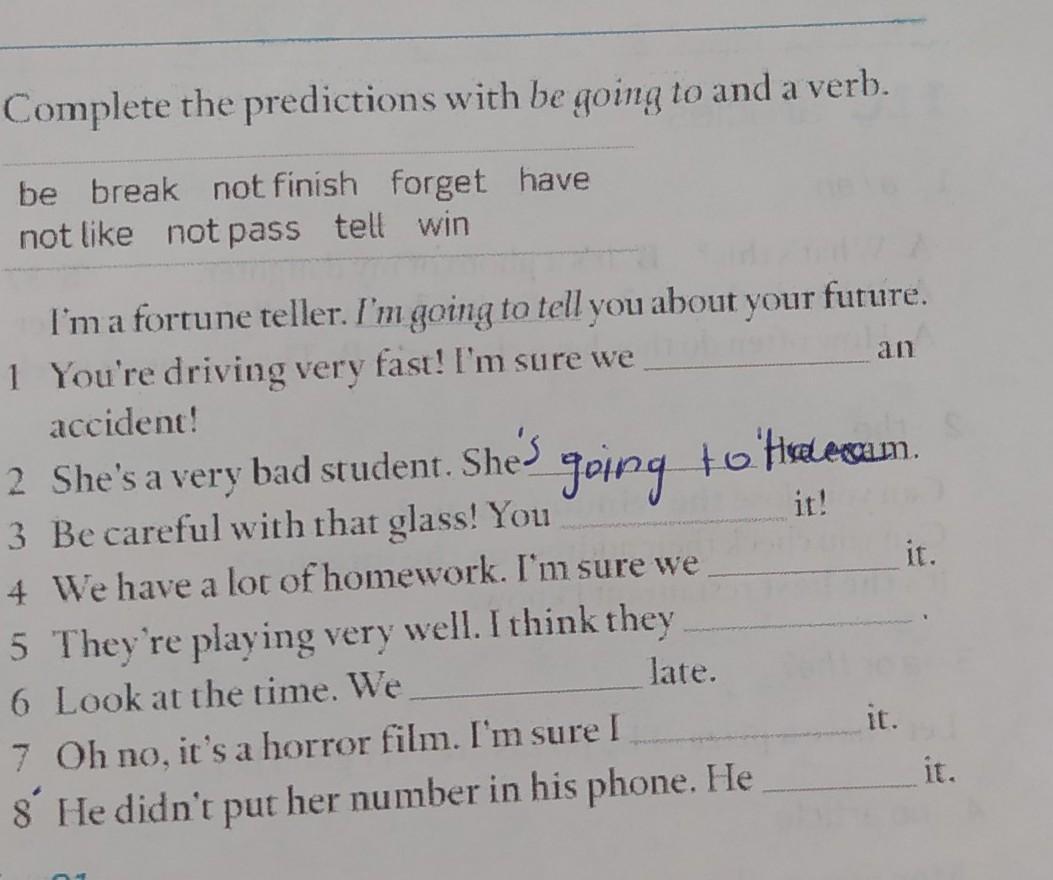 Complete the predictions with be going to and a verb.
be break not finish forget have
not like not pass tell win
I'm a fortune teller. I'm going to tell you about your future.
1 You're driving very fast! I'm sure we ____ an
accident!
2 She's a very bad student. She's going to exam.
3 Be careful with that glass! You ____ it!
4 We have a lot of homework. I'm sure we ____ it.
5 They're playing very well. I think they ____.
6 Look at the time. We ____ late.
7 Oh no, it's a horror film. I'm sure I ____ it.
8 He didn't put her number in his phone. He ____ it.